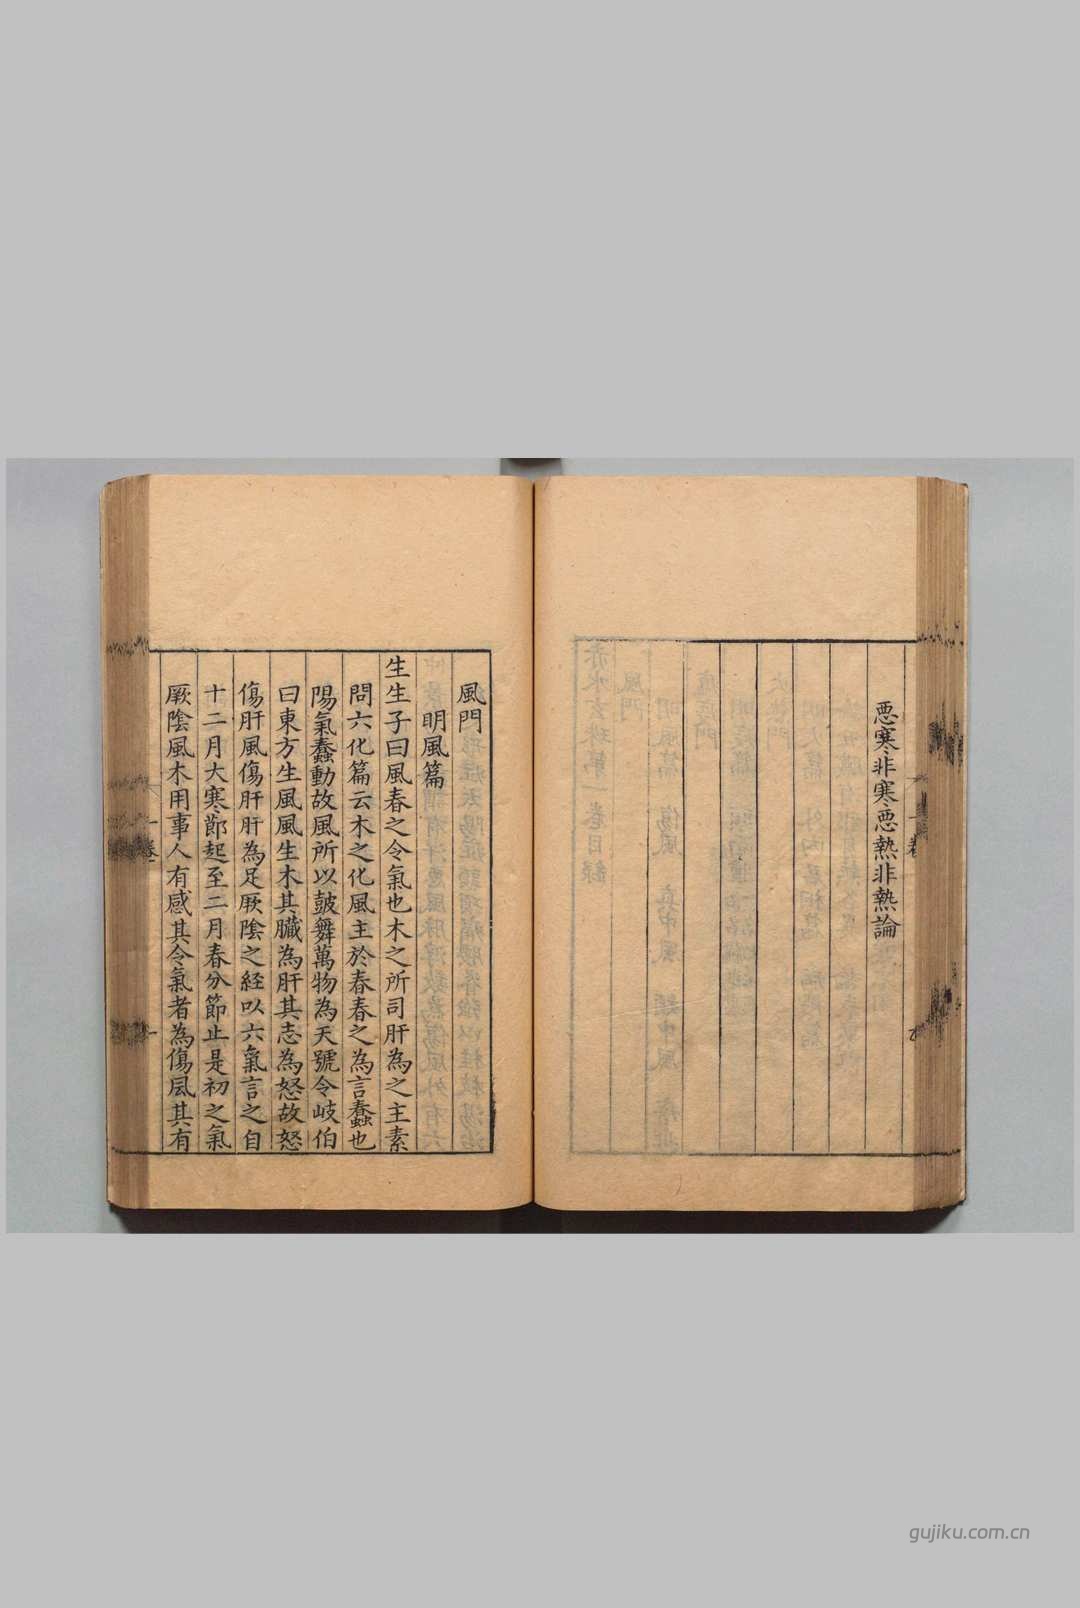 悪寒非寒悪熱非熱論
風門
明風篇
生生子曰風春之令氣也木之所司肝為之主素
問六化篇云木之化風主於春春之為言蠢也
陽氣蠢動故風所以皷舞萬物為天號令岐伯
曰東方生風風生木其臟為肝其志為怒故怒
傷肝風傷肝肝為足厥陰之経以六氣言之自
十二月大寒節起至二月春分節止是初之氣
厥陰風木用事人有感其令氣者為傷風其有
卷一
gujiku.com.cn